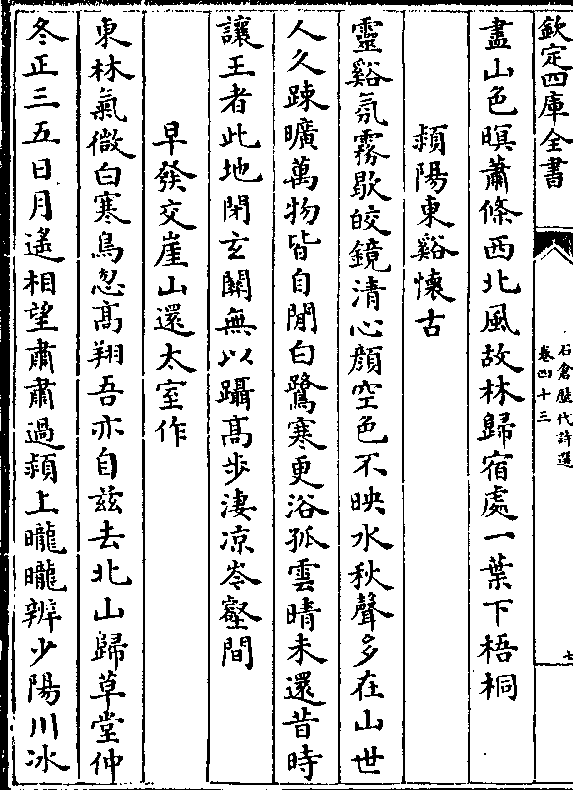 欽定四庫全書
石倉歷代詩選
卷四十三
七
盡山色暝蕭條西北風故林歸宿處一葉下梧桐
潁陽東谿懷古
靈谿氛霧歇皎鏡清心顔空色不映水秋聲多在山世
人久踈曠萬物皆自閒白鷺寒更浴孤雲晴未還昔時
讓王者此地閉玄關無以躡髙步淒凉岑壑間
早發交崖山還太室作
東林氣微白寒鳥忽髙翔吾亦自兹去北山歸草堂仲
冬正三五日月遙相望肅肅過潁上曨曨辨少陽川冰